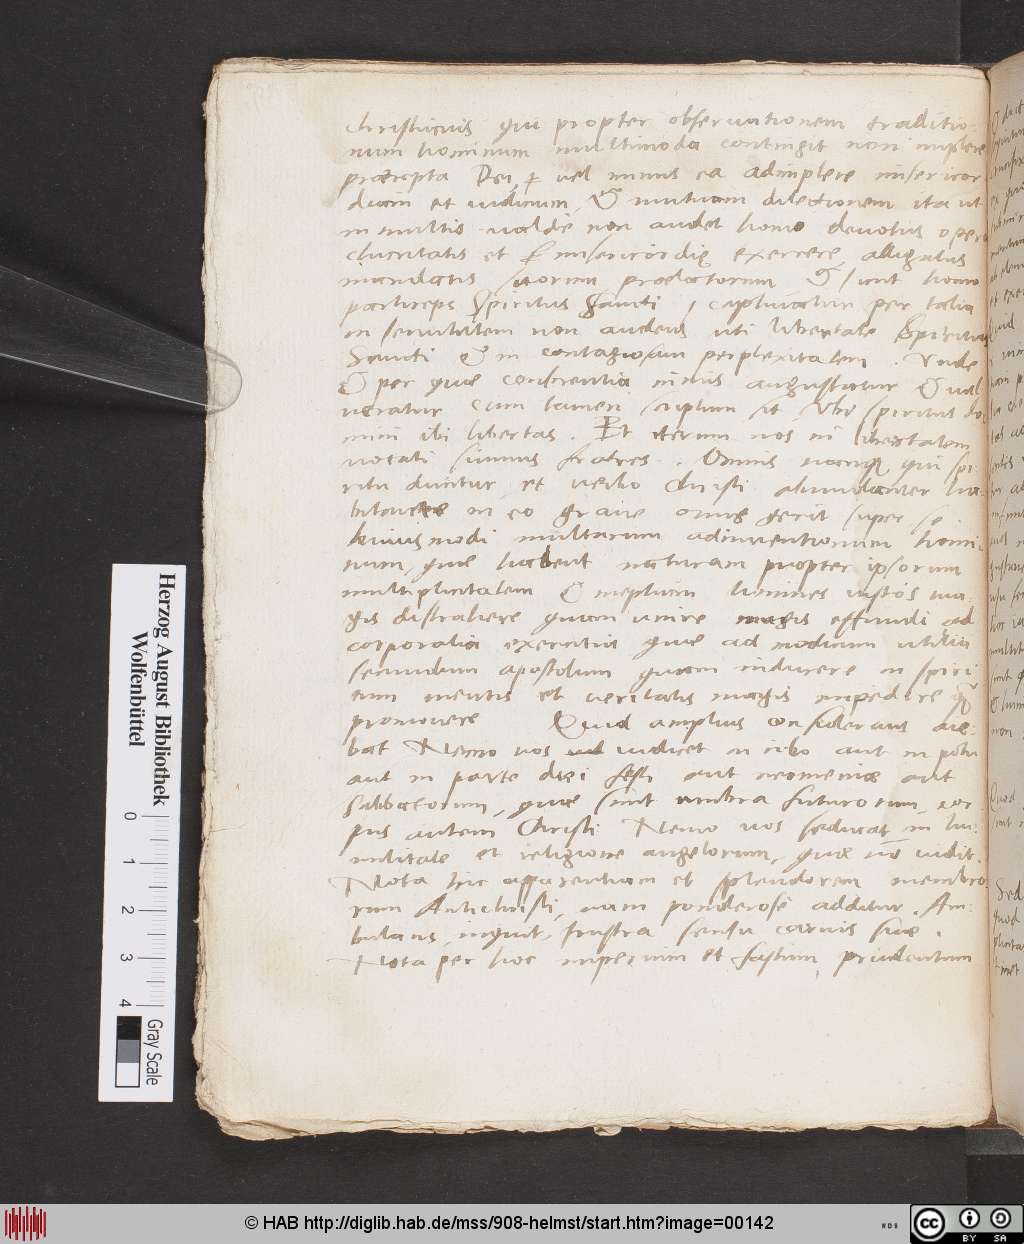 Christianis qui propter observationem traditio-
num hominum multimoda contingit non implere
præcepta Dei, vel minus ea adimplere misericor
diam et iudicium, & mutuam dilectionem ita ut
in multis valde non audet homo devotus opera
charitatis et misericordię exercere, alligatus
mandatis suorum prælatorum & sicut homo
particeps Spiritus Sancti, captivatur per talia
in servitutem non audens uti libertate Spiritus
Sancti & in contagiosam perplexitatem. Unde
& per quæ conscientia nimis angustatur & vul
neratur cum tamen scriptum sit Ubi spiritus do
mini ibi libertas. Et iterum vos in libertatem
vocati sumus fratres. Omnis namque qui spi-
ritu ducitur et verbo Christi abundanter ha-
bitante in eo grave onus gerit super se
huiusmodi multarum adinventionum homi
num, quæ habent naturam propter ipsorum
multiplicitatem & ineptum homines iustos ma-
gis distrahere quam unire magis effundi ad
corporalia exercitia quæ ad modicum utilia
secundum apostolum quam inducere in spiri
tum mentis et veritatis magis impedire quam
promovere Quid amplius considerans aie-
bat Nemo vos iudicet in cibo aut in potu
aut in parte diei festi aut neomeniæ aut
sabbatorum, quæ sunt umbra futurorum, cor
pus autem Christi Nemo vos seducat in hu-
militate et religione angelorum, quæ nō vidit.
Nota hic apparentiam et splendorem membro-
rum Antichristi, nam ponderose additur. Am-
bulans, inquit, frustra sensu carnis suæ.
Nota per hoc imperium et fastum, prudentum
Herzog August Bibliothek
Wolfenbüttel
0 1 2 3 4
Gray Scale
© HAB http://diglib.hab.de/mss/908-helmst/start.htm?image=00142
WDB
cc BY SA